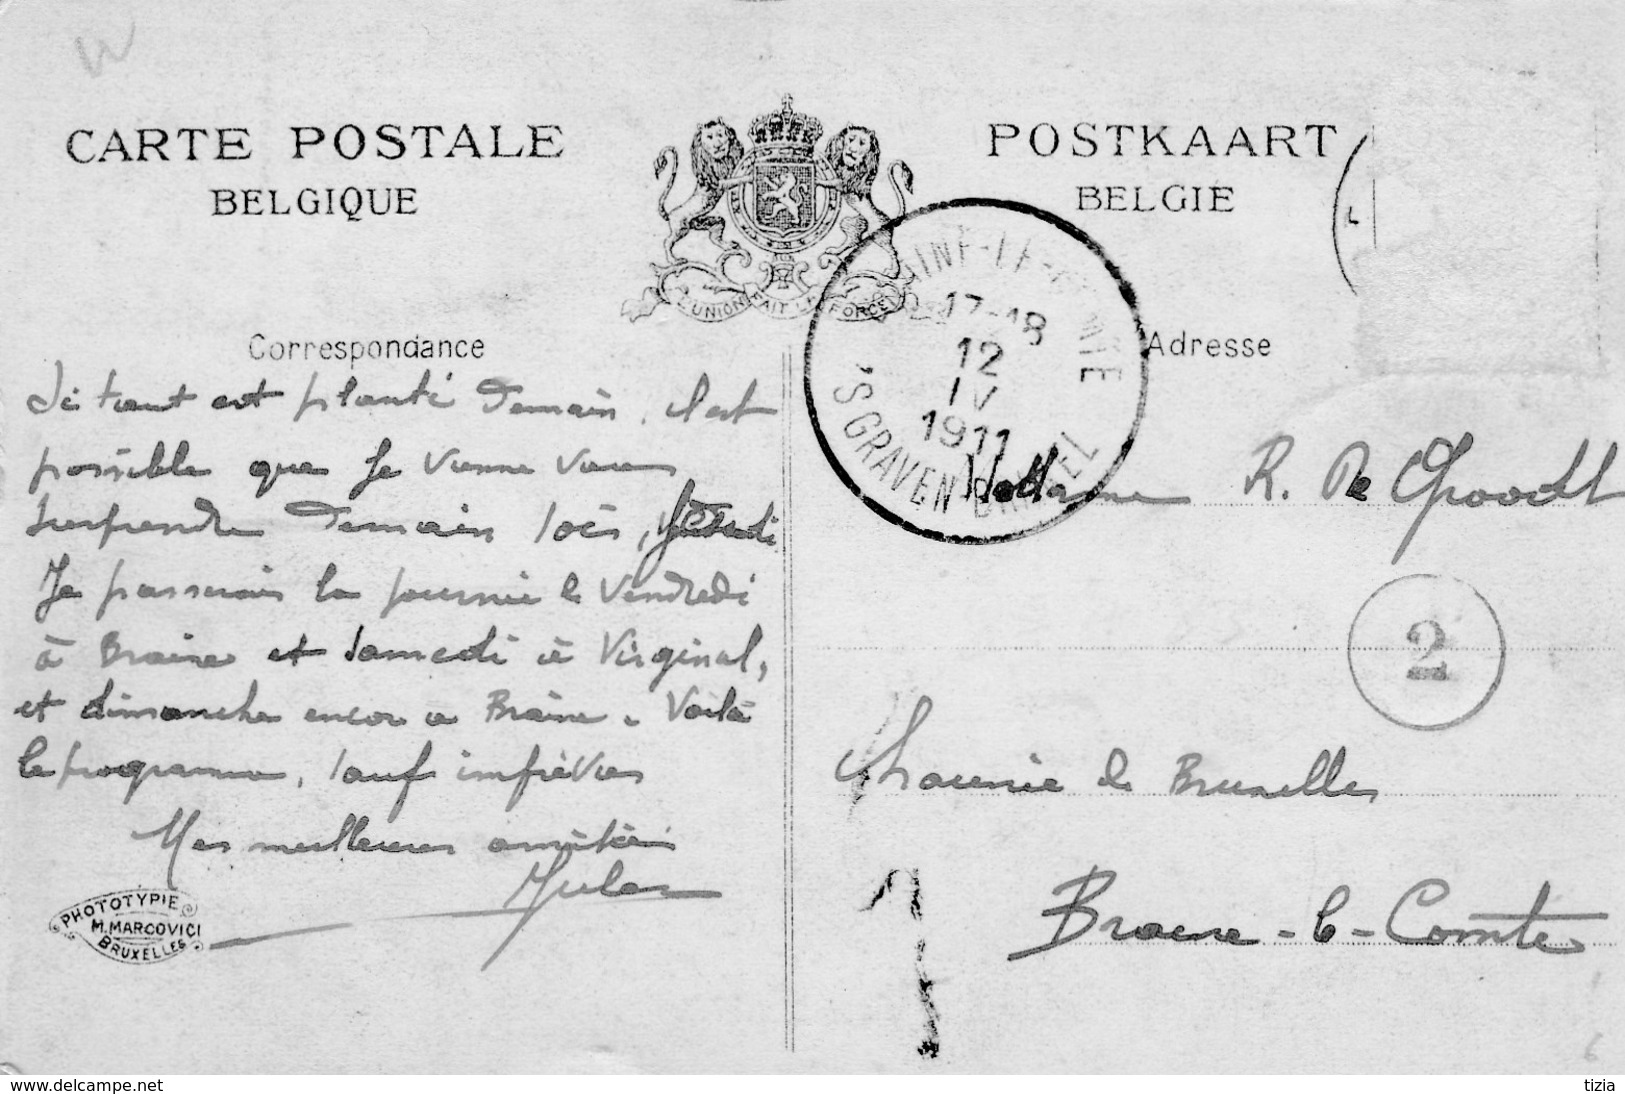 CARTE POSTALE
BELGIQUE
POSTKAART
BELGIE
L'UNION FAIT LA FORCE
Correspondance
Adresse
17-18
12
IV
1911
'S GRAVEN BRAKEL
Ici tout est planté demain, il est
possible que je vienne vous
surprendre demain soir,
Je passerais la journée le Vendredi
à Braine et samedi à Virginal,
et dimanche encor à Braine. Voilà
le programme, sauf imprévus
Mes meilleures amitiés
Jules
PHOTOTYPIE
M. MARCOVICI
BRUXELLES
Madame R. De
2
Chaussée de Bruxelles
Braine-le-Comte
6
www.delcampe.net
tizia